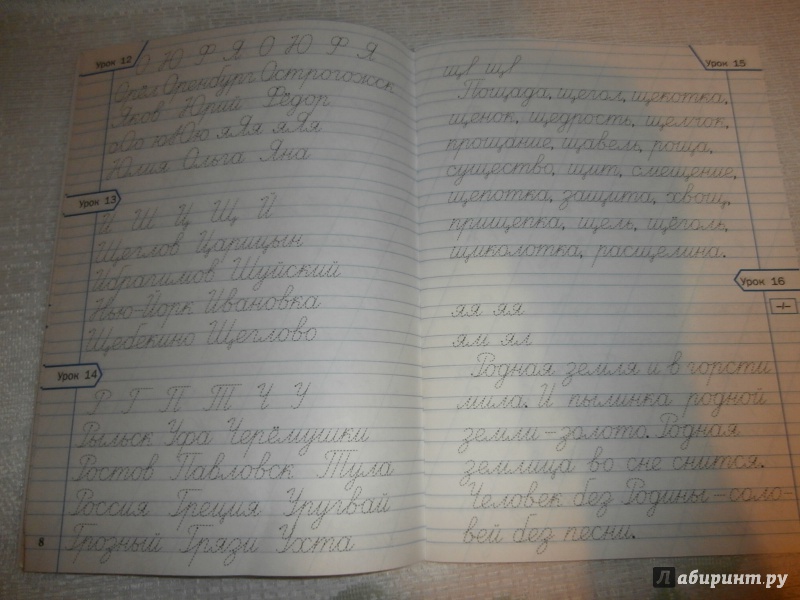 Урок 12
О Ю Ф Я О Ю Ф Я
Орёл Оренбург Острогожск
Яков Юрий Фёдор
оОо юЮю яЯя яЯя
Юлия Ольга Яна
Урок 13
И Ш Ц Щ Й
Щеглов Цапицын
Ибрагимов Шуйский
Нью-Йорк Ивановка
Щебекино Щеглово
Урок 14
Р Г П Т Ч У
Рыльск Уфа Черёмушки
Ростов Павловск Тула
Россия Греция Уругвай
Грозный Грязи Ухта
8
Урок 15
щв щв
Пощада, щегол, щекотка,
щенок, щедрость, щелчок,
прощание, щавель, роща,
существо, щит, смещение,
щепотка, защита, хвощ,
прищепка, щель, щёголь,
щиколотка, расщелина.
Урок 16
–/–
яя яя
ям ял
Родная земля и в горсти
мила. И пылинка родной
земли – золото. Родная
землица во сне снится.
Человек без Родины – соло-
вей без песни.
Лабиринт.ру